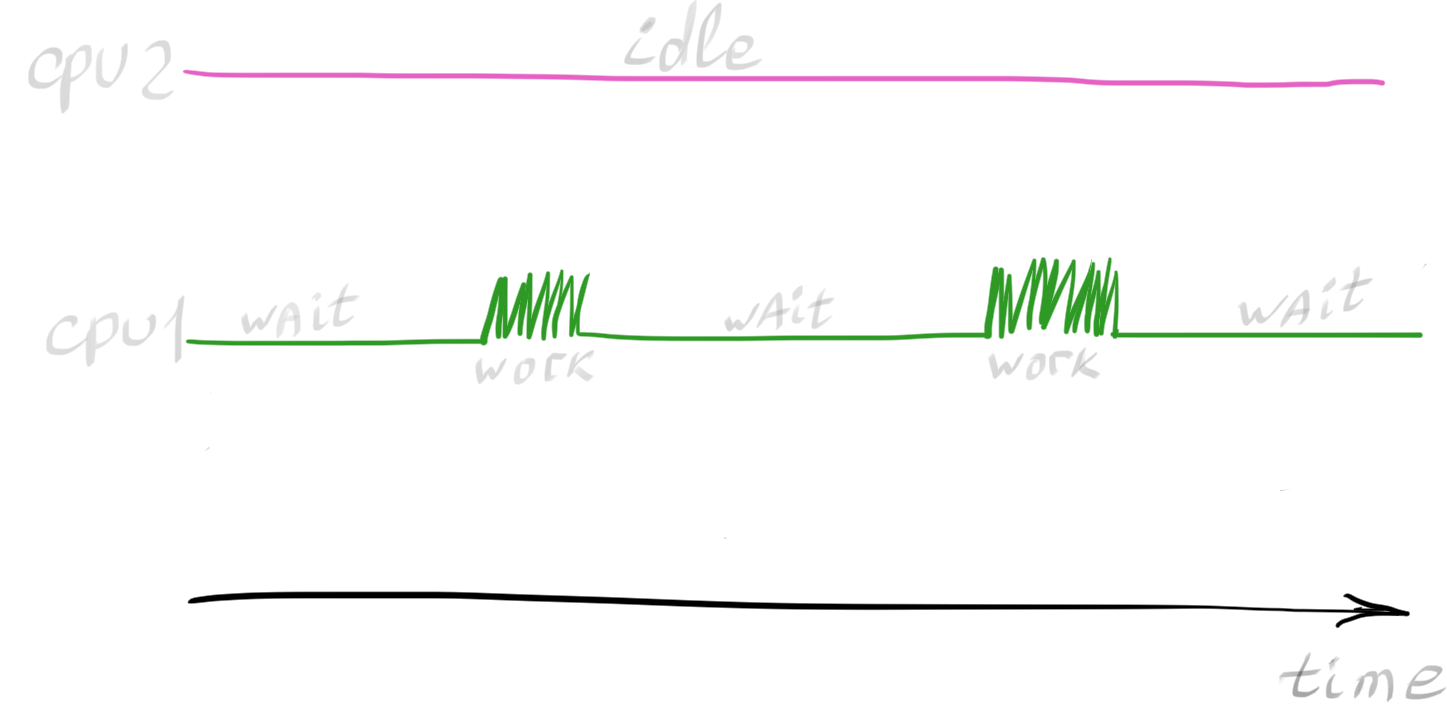 cpu2
idle
cpu1
wAit
work
wAit
work
wAit
time